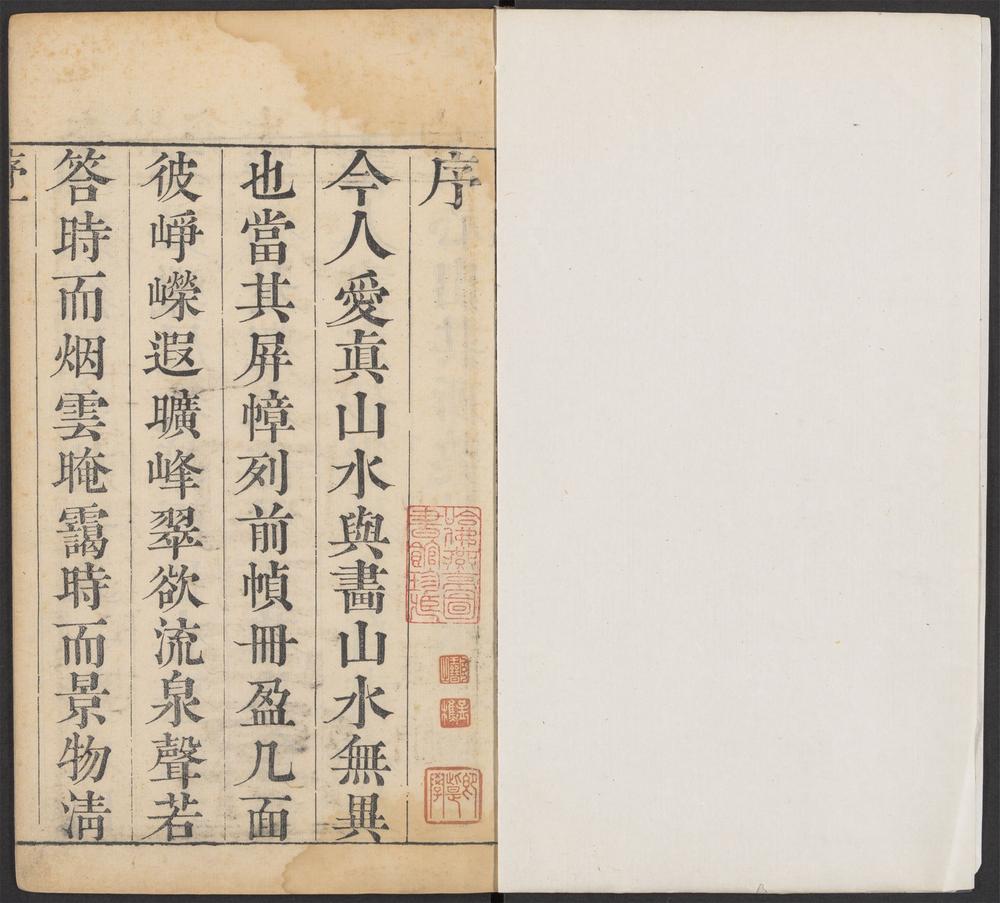 序
今人愛真山水與畵山水無異
也當其屏幛列前幀冊盈几面
彼崢嶸遐曠峰翠欲流泉聲若
答時而烟雲晻靄時而景物淸
序一
哈佛燕京圖書館珍藏